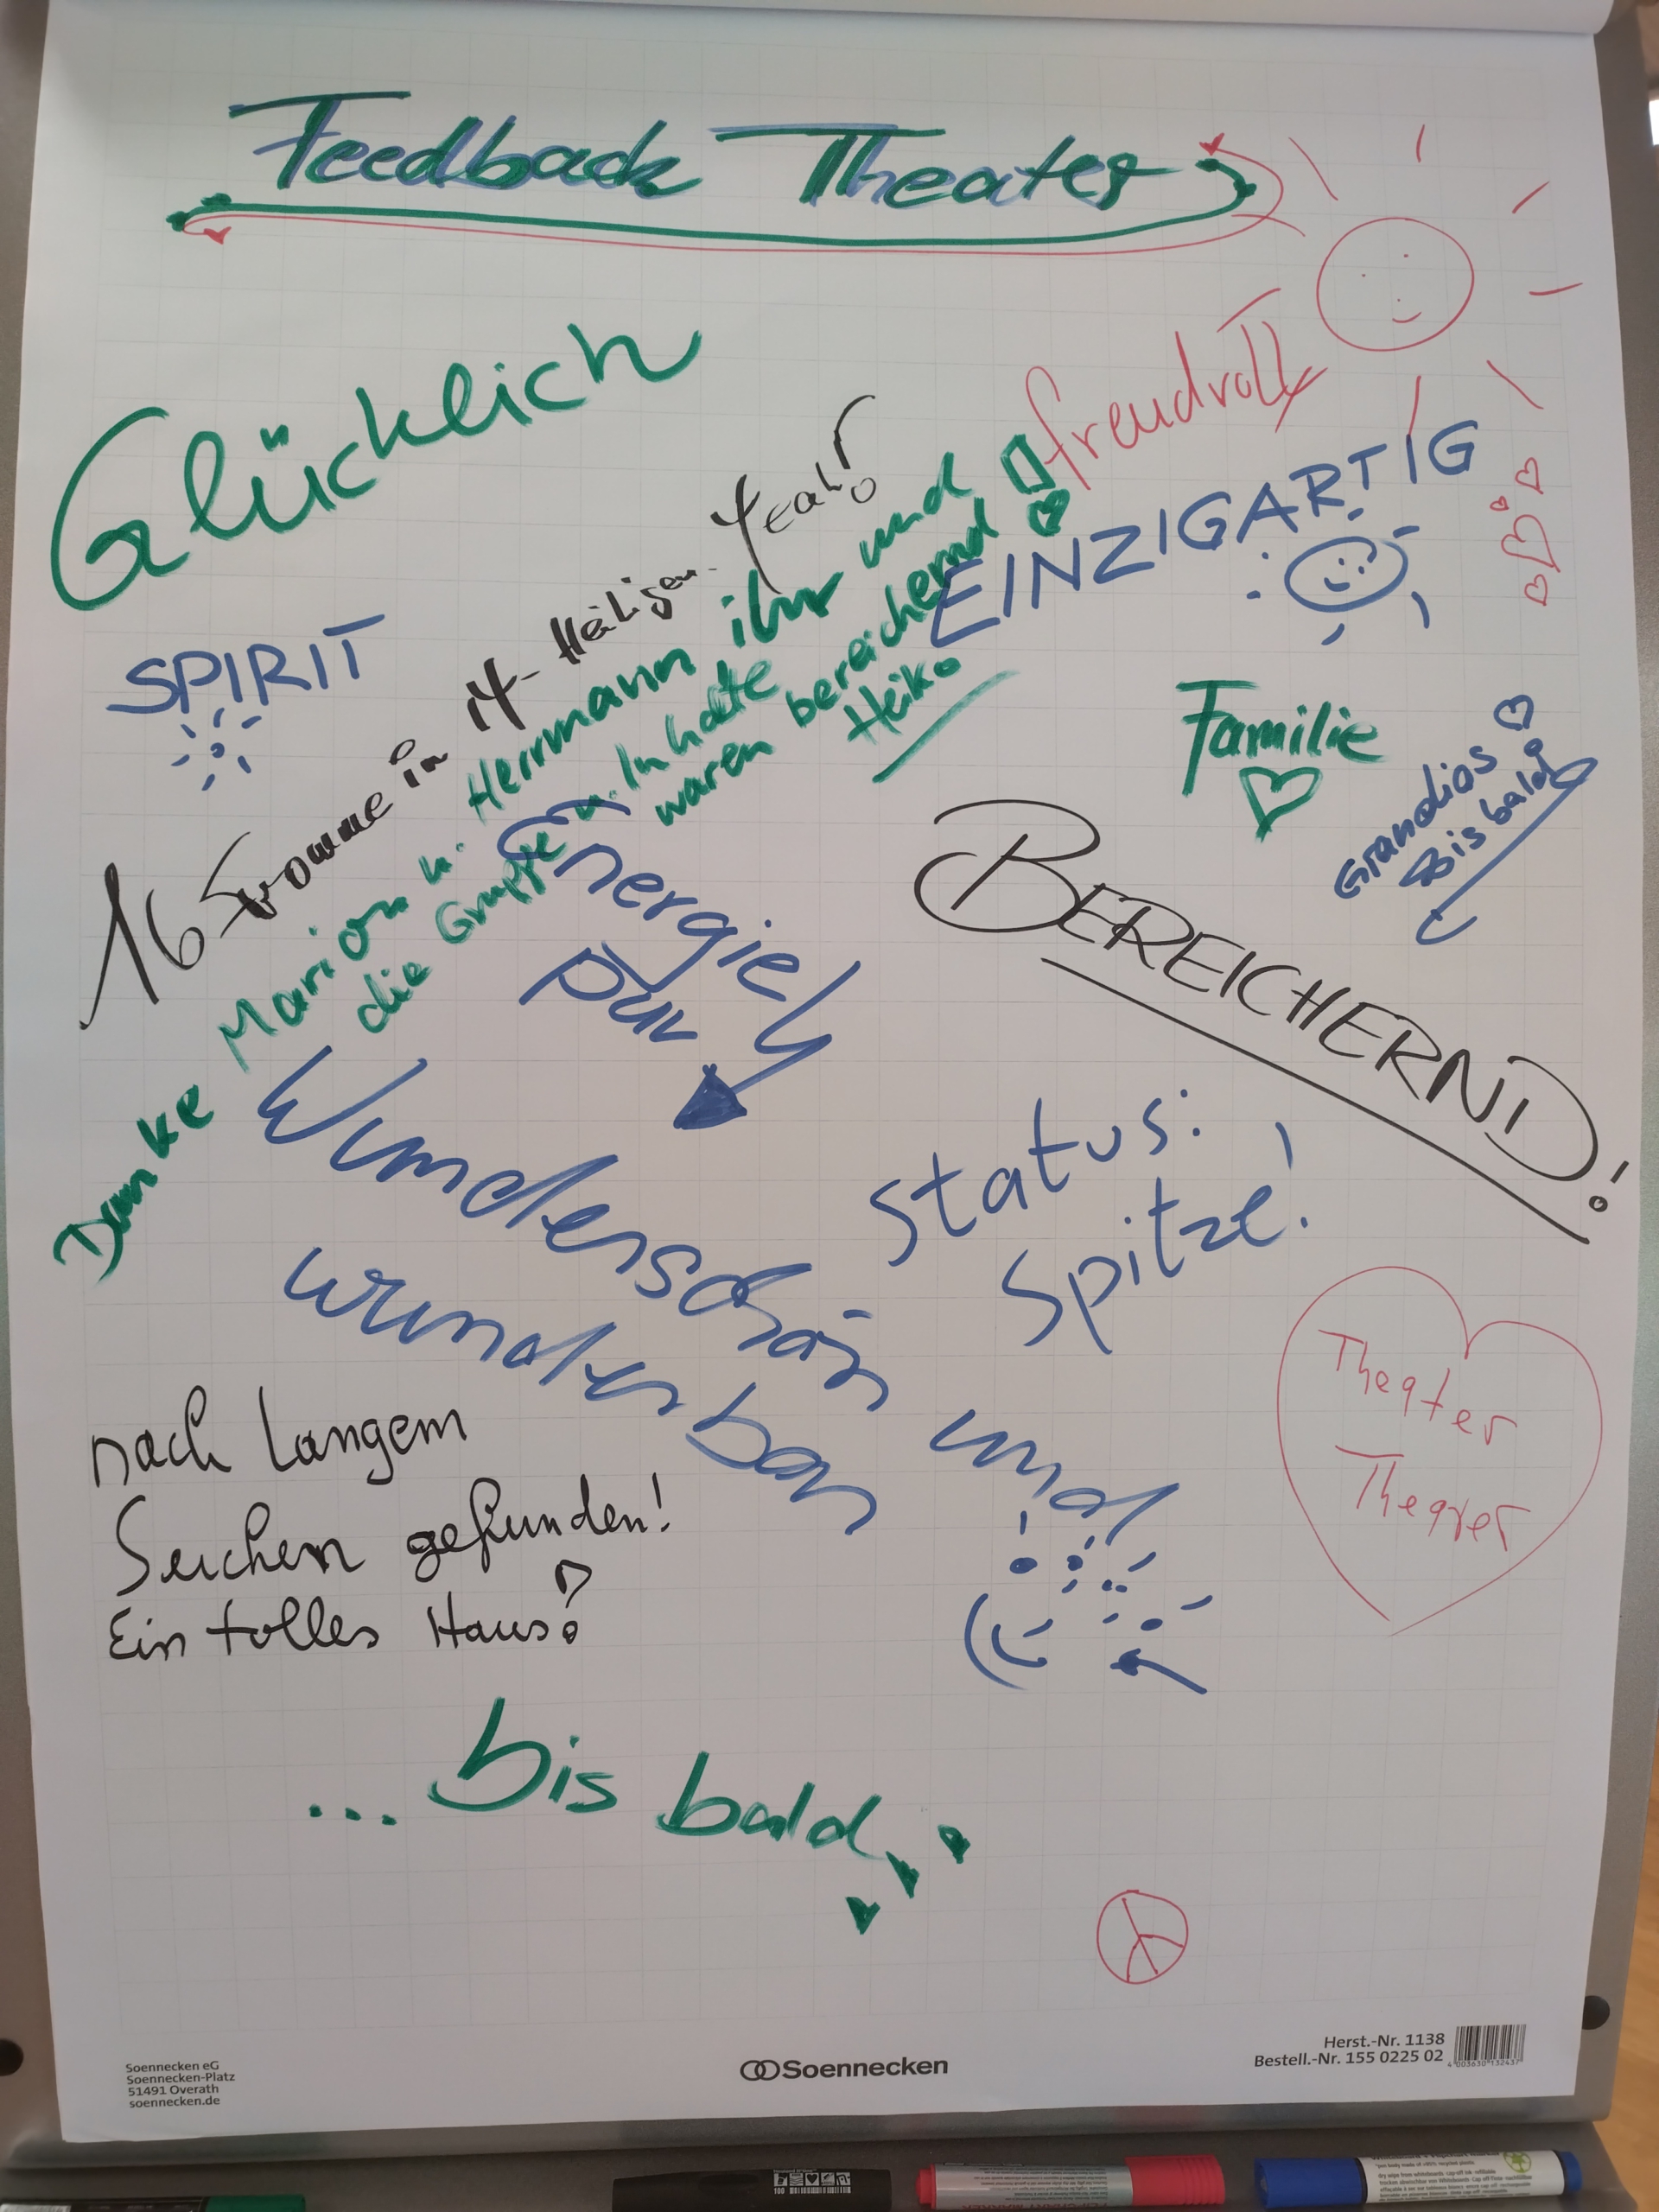 Feedback Theater
Glücklich
freudvoll
EINZIGARTIG
SPIRIT
16 Fromme in 14-Heiligen. Yeah!
Danke Marion u. Herrmann ihr und
die Gruppe u. Inhalte
waren bereichernd
Heiko
Familie
Grandios
Bis bald
Energie
pur
BEREICHERND!
Wunderschön und
wunderbar
Status:
Spitze!
Theater
Theater
nach langem
Suchen gefunden!
Ein tolles Haus!
... bis bald
Soennecken eG
Soennecken-Platz
51491 Overath
soennecken.de
Soennecken
Herst.-Nr. 1138
Bestell.-Nr. 155 0225 02
4 003630 132437